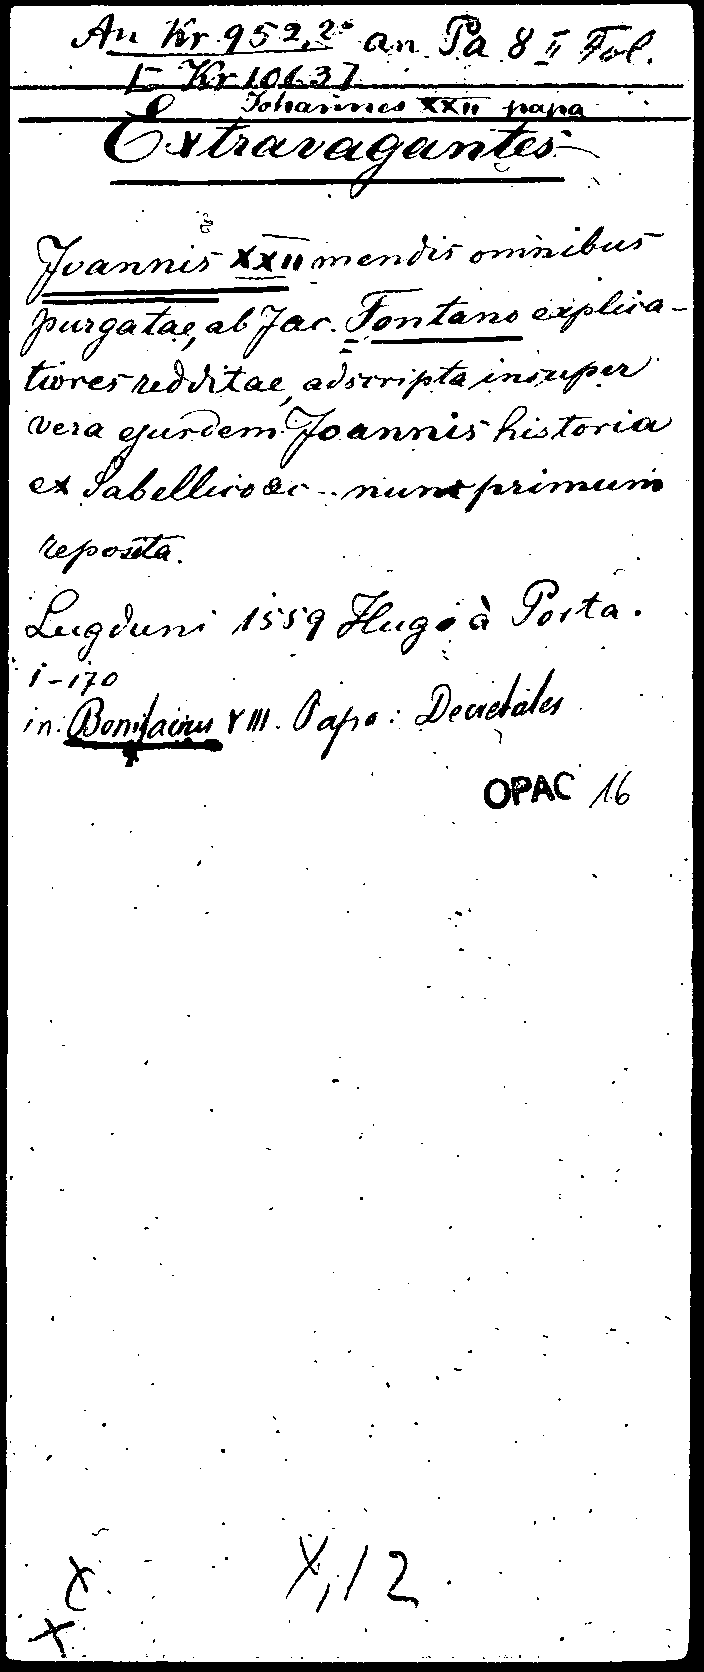 An Kr 952, 2° an Pa 8 II Fol.
E Kr 10637
Johannes XXII papa
Extravagantes
Joannis XXII mendis omnibus
purgatae, ab Jac. Fontano explica-
tiores redditae, adscripta insuper
vera ejusdem Joannis historia
ex Sabellico &c .. nunc primum
reposita.
Lugduni 1559 Hugo à Porta.
1-170
in: Bonifacius VIII. Papa: Decretales
OPAC 16
X, 12
X
X